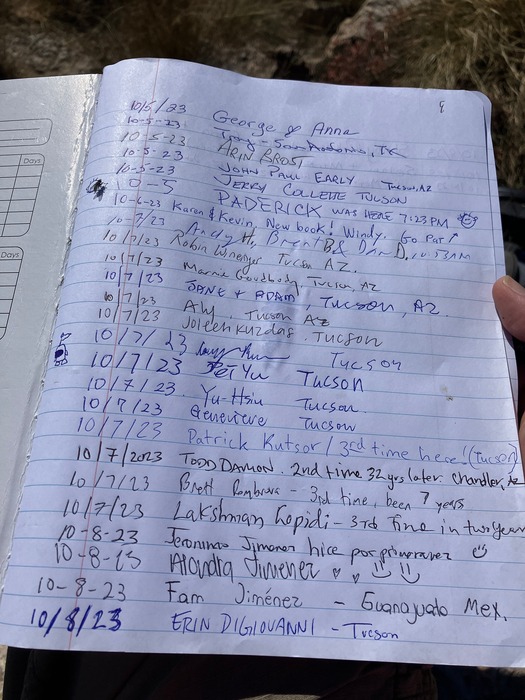 Days
Days
9
10/5/23 George & Anna
10-5-23 Troy - San Antonio, TX
10-5-23 ARIN BROST
10-5-23 JOHN PAUL EARLY Tucson, AZ
10-5-23 JERRY COLLETTE TUCSON
10-5 PADERICK WAS HERE 7:23 PM
10-6-23 Karen & Kevin, New book! Windy. Go Pat!
10-7/23 Andy H, Brent B & Dan D, 10:53AM
10/7/23 Robin Tucson AZ.
10/7/23 Marnie Goodbody, Tucson, AZ
10/7/23 JANE + ADAM, Tucson, AZ.
10/7/23 Aly, Tucson AZ
10/7/23 Joleen Kurdas, Tucson
10/7/23 Tucson
10/7/23 Pei Yu Tucson
10/7/23 Yu-Hsiu Tucson
10/7/23 Genevieve Tucson
10/7/23 Patrick Kutsor / 3rd time here! (Tucson)
10/7/2023 TODD DAMON. 2nd time 32 yrs later. Chandler, Az
10/7/23 Brett - 3rd time, been 7 years
10/7/23 Lakshman Gopidi - 3rd time in two years
10-8-23 Jeronimo Jimenez hice por primera vez
10-8-23 Alondra Jimenez
10-8-23 Fam Jiménez - Guanajuato Mex.
10/8/23 ERIN DIGIOVANNI - Tucson